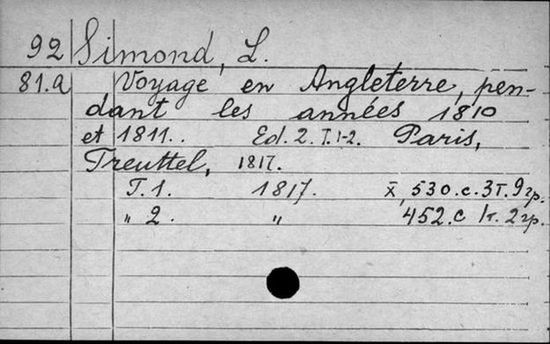 92 Simond, L.
81.a Voyage en Angleterre, pen-
dant les années 1810
et 1811. Ed. 2. T. 1-2. Paris,
Treuttel, 1817.
T. 1. 1817. X, 530.c. 3т. 9гр.
„ 2. „ 452.c 1т. 2гр.